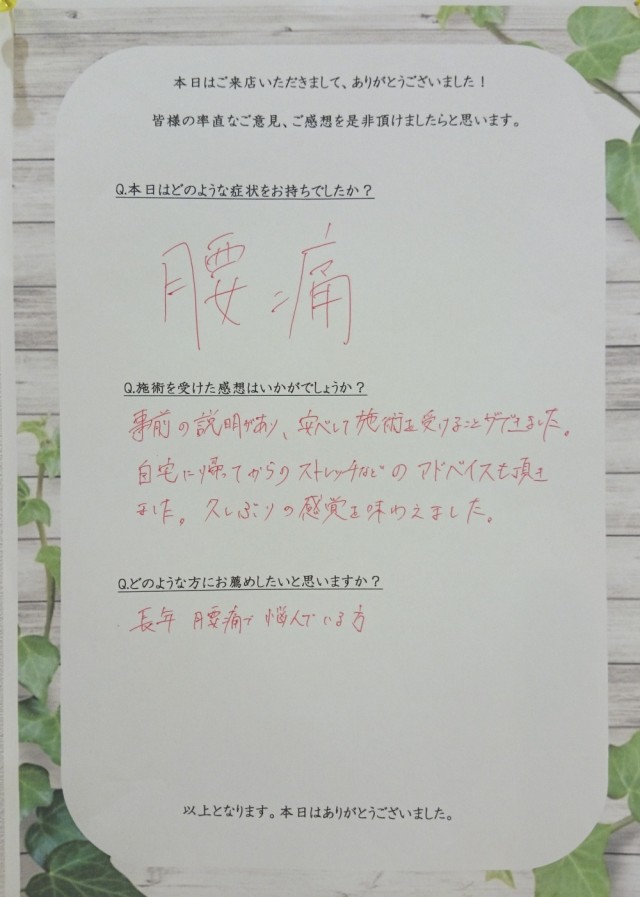 本日はご来店いただきまして、ありがとうございました！
皆様の率直なご意見、ご感想を是非頂けましたらと思います。
Q.本日はどのような症状をお持ちでしたか？
腰痛
Q.施術を受けた感想はいかがでしょうか？
事前の説明があり、安心して施術を受けることができました。
自宅に帰ってからのストレッチなどのアドバイスも頂き
ました。久しぶりの感覚を味わえました。
Q.どのような方にお薦めしたいと思いますか？
長年 腰痛で悩んでいる方
以上となります。本日はありがとうございました。